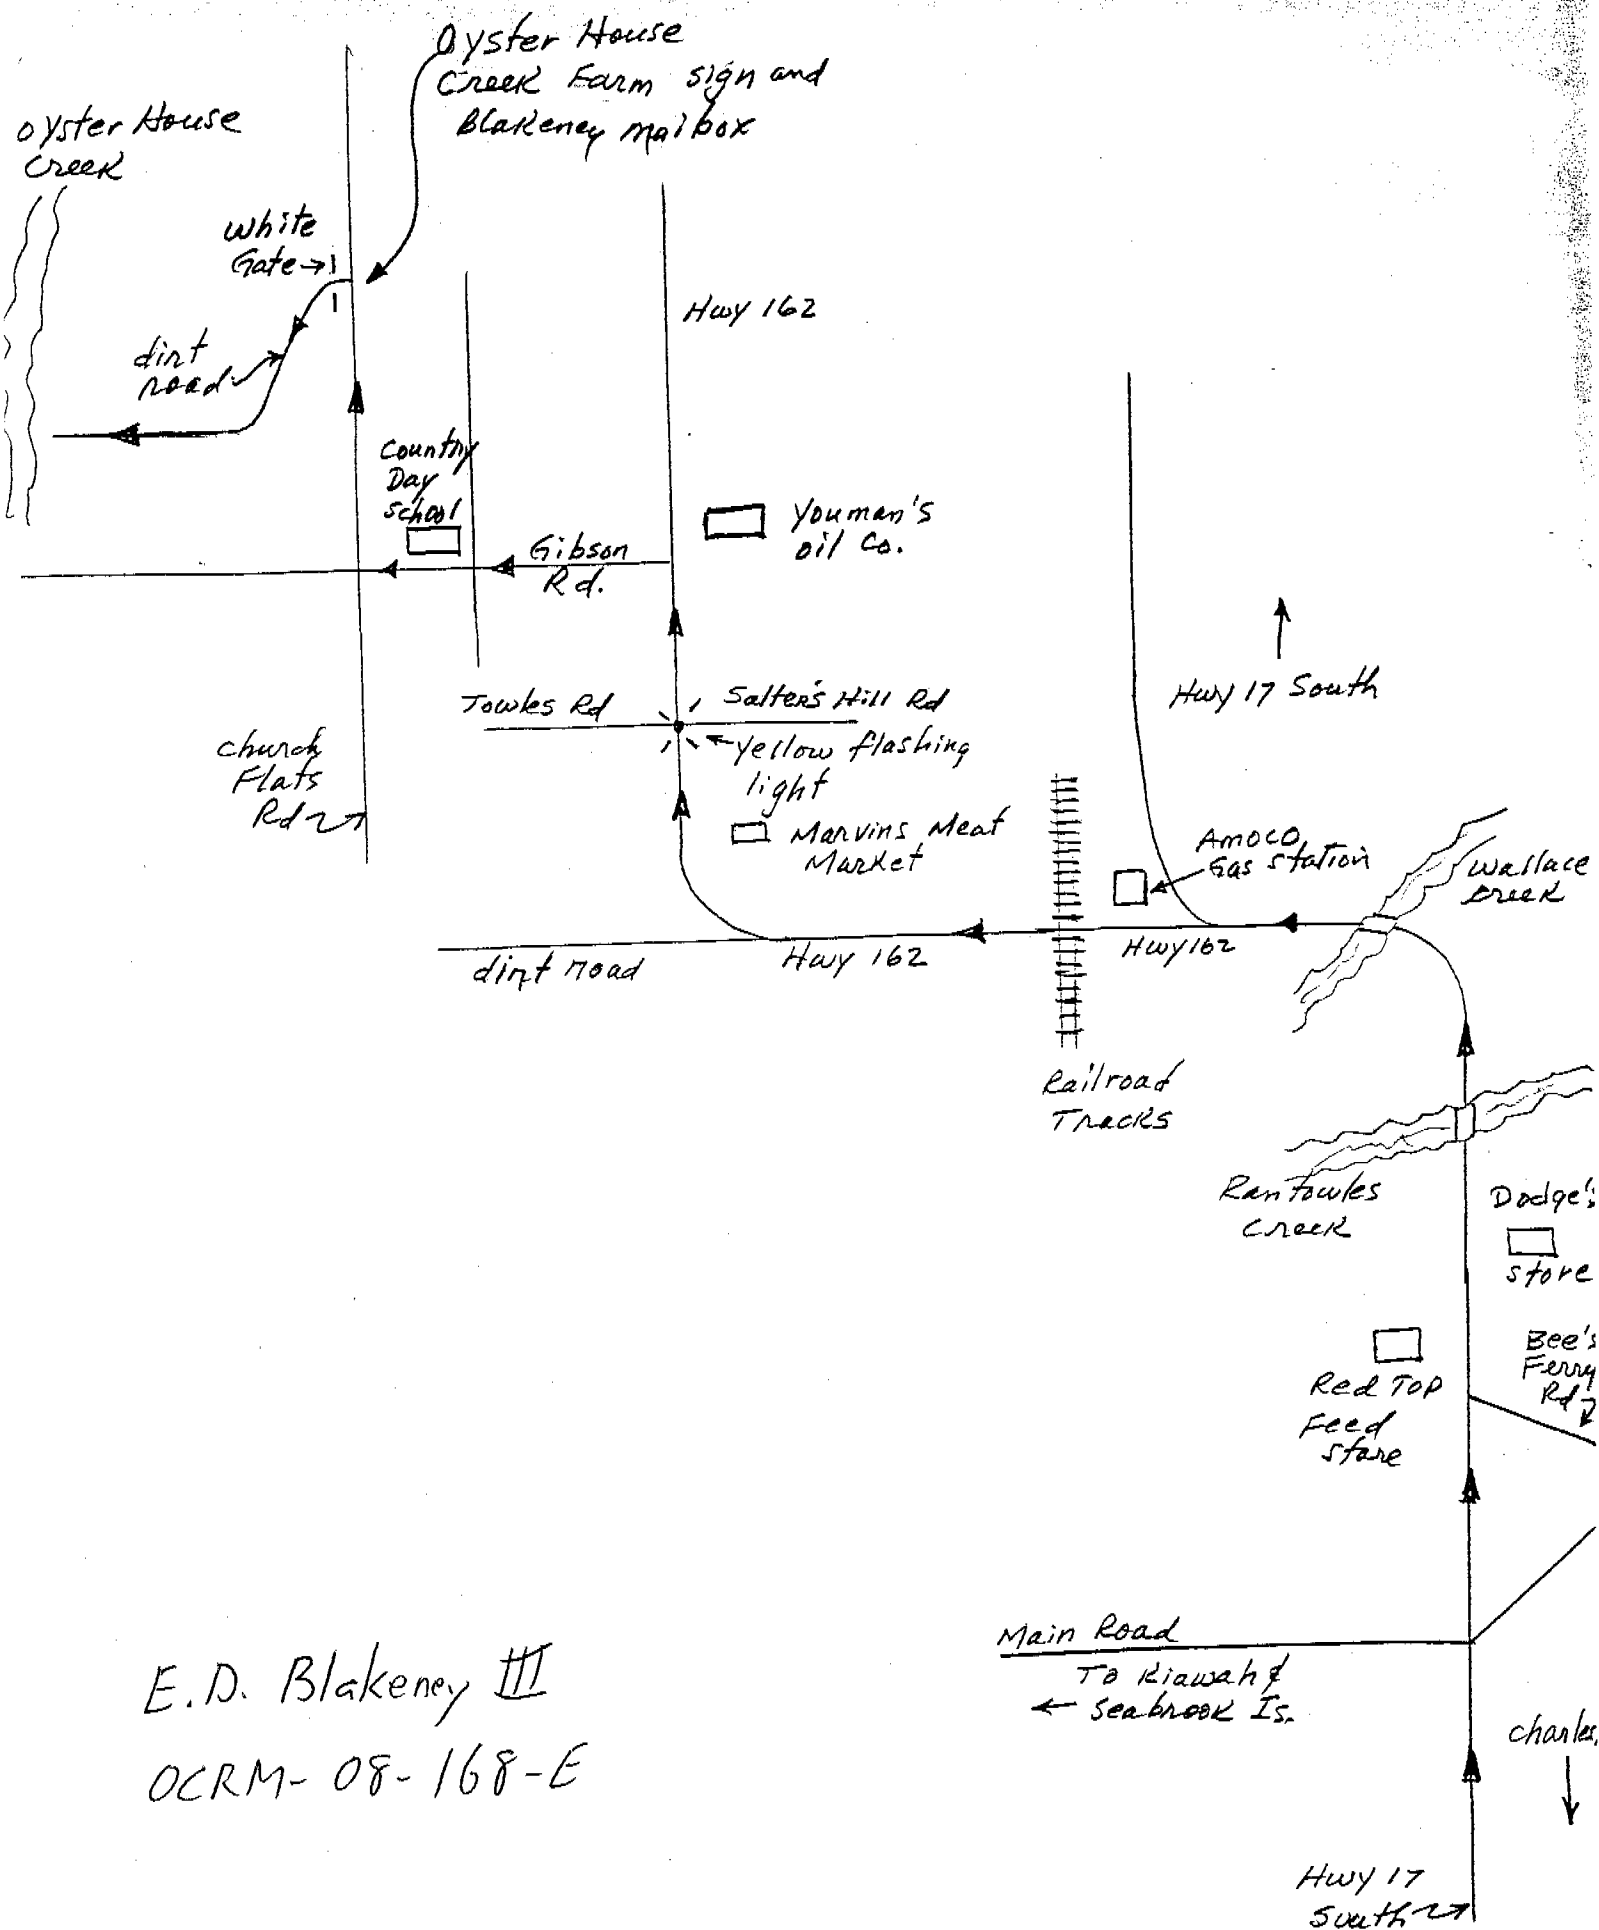 Oyster House
Creek Farm sign and
Blakeney mailbox
Oyster House
Creek
White
Gate
dirt
road
Hwy 162
Country
Day
School
Youman's
Oil Co.
Gibson
Rd.
Hwy 17 South
Towles Rd
Salter's Hill Rd
Yellow flashing
light
Church
Flats
Rd
Marvins Meat
Market
Amoco
Gas Station
Wallace
Creek
dirt road
Hwy 162
Hwy 162
Railroad
Tracks
Rantowles
Creek
Dodge's
store
Red Top
Feed
store
Bee's
Ferry
Rd
Main Road
To Kiawah &
Seabrook Is.
E.D. Blakeney III
OCRM-08-168-E
Charles
Hwy 17
South